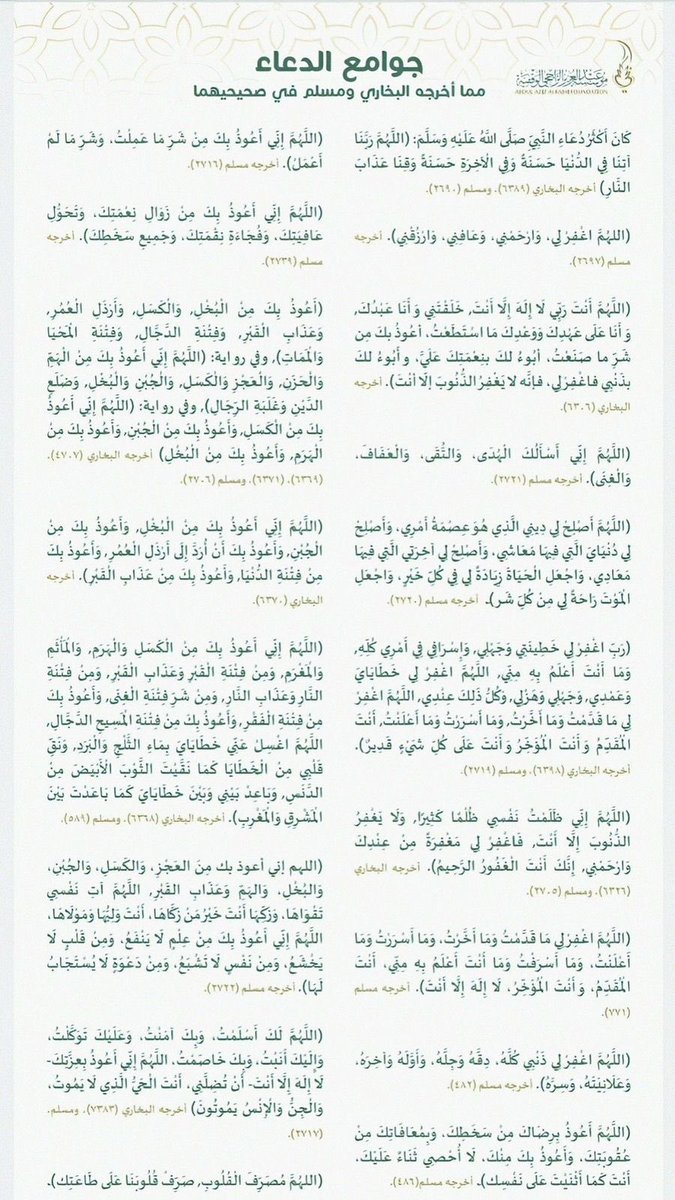 جوامع الدعاء
مما أخرجه البخاري ومسلم في صحيحيهما
مؤسسة عبدالعزيز الراجحي الوقفية
ABDUL AZIZ ALRAJHI FOUNDATION
كَانَ أَكْثَرُ دُعَاءِ النَّبِيِّ صَلَّى اللهُ عَلَيْهِ وَسَلَّمَ: (اللَّهُمَّ رَبَّنَا
آتِنَا فِي الدُّنْيَا حَسَنَةً وَفِي الْآخِرَةِ حَسَنَةً وَقِنَا عَذَابَ
النَّارِ) أخرجه البخاري (٦٣٨٩). ومسلم (٢٦٩٠).
(اللهُمَّ اغْفِرْ لِي، وَارْحَمْنِي، وَعَافِنِي، وَارْزُقْنِي). أخرجه
مسلم (٢٦٩٧).
(اللَّهُمَّ أَنْتَ رَبِّي لَا إِلَهَ إِلَّا أَنْتَ, خَلَقْتَنِي وَأَنَا عَبْدُكَ,
وَأَنَا عَلَى عَهْدِكَ وَوَعْدِكَ مَا اسْتَطَعْتُ، أعُوذُ بكَ مِن
شَرِّ ما صَنَعْتُ، أبُوءُ لكَ بنِعْمَتِكَ عَلَيَّ، و أبُوءُ لكَ
بذَنْبِي فاغْفِرْلِي، فإنَّه لا يَغْفِرُ الذُّنُوبَ إلَّا أنْتَ). أخرجه
البخاري (٦٣٠٦).
(اللَّهُمَّ إِنِّي أَسْأَلُكَ الْهُدَى، وَالتُّقَى، وَالْعَفَافَ،
وَالْغِنَى). أخرجه مسلم (٢٧٢١).
(اللَّهُمَّ أَصْلِحْ لِي دِينِي الَّذِي هُوَ عِصْمَةُ أَمْرِي، وَأَصْلِحْ
لِي دُنْيَايَ الَّتِي فِيهَا مَعَاشِي، وَأَصْلِحْ لِي آخِرَتِي الَّتِي فِيهَا
مَعَادِي، وَاجْعَلِ الْحَيَاةَ زِيَادَةً لِي فِي كُلِّ خَيْرٍ، وَاجْعَلِ
الْمَوْتَ رَاحَةً لِي مِنْ كُلِّ شَر). أخرجه مسلم (٢٧٢٠).
(رَبِّ اغْفِرْ لِي خَطِيئَتِي وَجَهْلِي، وَإِسْرَافِي فِي أَمْرِي كُلِّهِ,
وَمَا أَنْتَ أَعْلَمُ بِهِ مِنِّي, اللَّهُمَّ اغْفِرْ لِي خَطَايَايَ
وَعَمْدِي، وَجَهْلِي وَهَزْلِي, وَكُلُّ ذَلِكَ عِنْدِي, اللَّهُمَّ اغْفِرْ
لِي مَا قَدَّمْتُ وَمَا أَخَّرْتُ، وَمَا أَسْرَرْتُ وَمَا أَعْلَنْتُ, أَنْتَ
الْمُقَدِّمُ وَأَنْتَ الْمُؤَخِّرُ وَأَنْتَ عَلَى كُلِّ شَيْءٍ قَدِيرٌ).
أخرجه البخاري (٦٣٩٨). ومسلم (٢٧١٩).
(اللَّهُمَّ إِنِّي ظَلَمْتُ نَفْسِي ظُلْمًا كَثِيرًا, وَلَا يَغْفِرُ
الذُّنُوبَ إِلَّا أَنْتَ, فَاغْفِرْ لِي مَغْفِرَةً مِنْ عِنْدِكَ
وَارْحَمْنِي, إِنَّكَ أَنْتَ الْغَفُورُ الرَّحِيمُ). أخرجه البخاري
(٦٣٢٦). ومسلم (٢٧٠٥).
(اللَّهُمَّ اغْفِرْ لِي مَا قَدَّمْتُ وَمَا أَخَّرْتُ، وَمَا أَسْرَرْتُ وَمَا
أَعْلَنْتُ، وَمَا أَسْرَفْتُ وَمَا أَنْتَ أَعْلَمُ بِهِ مِنِّي، أَنْتَ
الْمُقَدِّمُ، وَأَنْتَ الْمُؤَخِّرُ، لَا إِلَهَ إِلَّا أَنْتَ). أخرجه مسلم
(٧٧١).
(اللَّهُمَّ اغْفِرْ لِي ذَنْبِي كُلَّهُ، دِقَّهُ وَجِلَّهُ، وَأَوَّلَهُ وَآخِرَهُ،
وَعَلَانِيَتَهُ، وَسِرَّهُ). أخرجه مسلم (٤٨٢)
(اللَّهُمَّ أَعُوذُ بِرِضَاكَ مِنْ سَخَطِكَ، وَبِمُعَافَاتِكَ مِنْ
عُقُوبَتِكَ، وَأَعُوذُ بِكَ مِنْكَ، لَا أُحْصِي ثَنَاءً عَلَيْكَ،
أَنْتَ كَمَا أَثْنَيْتَ عَلَى نَفْسِك). أخرجه مسلم(٤٨٦)
(اللَّهُمَّ إِنِّي أَعُوذُ بِكَ مِنْ شَرِّ مَا عَمِلْتُ، وَشَرِّ مَا لَمْ
أَعْمَلْ). أخرجه مسلم (٢٧١٦).
(اللَّهُمَّ إِنِّي أَعُوذُ بِكَ مِنْ زَوَالِ نِعْمَتِكَ، وَتَحَوُّلِ
عَافِيَتِكَ، وَفُجَاءَةِ نِقْمَتِكَ، وَجَمِيعِ سَخَطِكَ). أخرجه
مسلم (٢٧٣٩).
(أَعُوذُ بِكَ مِنَ الْبُخْلِ, وَالْكَسَلِ, وَأَرْذَلِ الْعُمُرِ,
وَعَذَابِ الْقَبْرِ, وَفِتْنَةِ الدَّجَّالِ, وَفِتْنَةِ الْمَحْيَا
وَالْمَمَاتِ), وفي رواية: (اللَّهُمَّ إِنِّي أَعُوذُ بِكَ مِنَ الْهَمِّ
وَالْحَزَنِ, وَالْعَجْزِ وَالْكَسَلِ, وَالْجُبْنِ وَالْبُخْلِ, وَضَلَعِ
الدَّيْنِ وَغَلَبَةِ الرِّجَالِ), وفي رواية: (اللَّهُمَّ إِنِّي أَعُوذُ
بِكَ مِنَ الْكَسَلِ, وَأَعُوذُ بِكَ مِنَ الْجُبْنِ, وَأَعُوذُ بِكَ مِنَ
الْهَرَمِ, وَأَعُوذُ بِكَ مِنَ الْبُخْلِ) أخرجه البخاري (٤٧٠٧).
(٦٣٦٩). (٦٣٧١). ومسلم (٢٧٠٦).
(اللَّهُمَّ إِنِّي أَعُوذُ بِكَ مِنَ الْبُخْلِ, وَأَعُوذُ بِكَ مِنَ
الْجُبْنِ, وَأَعُوذُ بِكَ أَنْ أُرَدَّ إِلَى أَرْذَلِ الْعُمُرِ, وَأَعُوذُ بِكَ
مِنْ فِتْنَةِ الدُّنْيَا, وَأَعُوذُ بِكَ مِنْ عَذَابِ الْقَبْرِ). أخرجه
البخاري (٦٣٧٠).
(اللَّهُمَّ إِنِّي أَعُوذُ بِكَ مِنَ الْكَسَلِ وَالْهَرَمِ, وَالْمَأْثَمِ
وَالْمَغْرَمِ, وَمِنْ فِتْنَةِ الْقَبْرِ وَعَذَابِ الْقَبْرِ, وَمِنْ فِتْنَةِ
النَّارِ وَعَذَابِ النَّارِ, وَمِنْ شَرِّ فِتْنَةِ الْغِنَى, وَأَعُوذُ بِكَ
مِنْ فِتْنَةِ الْفَقْرِ, وَأَعُوذُ بِكَ مِنْ فِتْنَةِ الْمَسِيحِ الدَّجَّالِ,
اللَّهُمَّ اغْسِلْ عَنِّي خَطَايَايَ بِمَاءِ الثَّلْجِ وَالْبَرَدِ, وَنَقِّ
قَلْبِي مِنَ الْخَطَايَا كَمَا نَقَّيْتَ الثَّوْبَ الْأَبْيَضَ مِنَ
الدَّنَسِ, وَبَاعِدْ بَيْنِي وَبَيْنَ خَطَايَايَ كَمَا بَاعَدْتَ بَيْنَ
الْمَشْرِقِ وَالْمَغْرِبِ). أخرجه البخاري (٦٣٦٨). ومسلم (٥٨٩).
(اللهم إني أعوذ بك مِنَ العَجْزِ، وَالكَسَلِ، وَالجُبْنِ،
وَالبُخْلِ، وَالهَمِّ وَعَذَابِ القَبْرِ, اللَّهُمَّ آتِ نَفْسِي
تَقْوَاهَا، وَزَكِّهَا أَنْتَ خَيْرُ مَن زَكَّاهَا، أَنْتَ وَلِيُّهَا وَمَوْلَاهَا،
اللَّهُمَّ إِنِّي أَعُوذُ بِكَ مِنْ عِلْمٍ لَا يَنْفَعُ، وَمِنْ قَلْبٍ لَا
يَخْشَعُ، وَمِنْ نَفْسٍ لَا تَشْبَعُ، وَمِنْ دَعْوَةٍ لَا يُسْتَجَابُ
لَهَا). أخرجه مسلم (٢٧٢٢).
(اللَّهُمَّ لَكَ أَسْلَمْتُ، وَبِكَ آمَنْتُ، وَعَلَيْكَ تَوَكَّلْتُ،
وَإِلَيْكَ أَنَبْتُ، وَبِكَ خَاصَمْتُ، اللَّهُمَّ إِنِّي أَعُوذُ بِعِزَّتِكَ-
لَا إِلَهَ إِلَّا أَنْتَ- أَنْ تُضِلَّنِي، أَنْتَ الْحَيُّ الَّذِي لَا يَمُوتُ،
وَالْجِنُّ وَالْإِنْسُ يَمُوتُونَ) أخرجه البخاري (٧٣٨٣). ومسلم.
(٢٧١٧).
(اللَّهُمَّ مُصَرِّفَ الْقُلُوبِ, صَرِّفْ قُلُوبَنَا عَلَى طَاعَتِك).